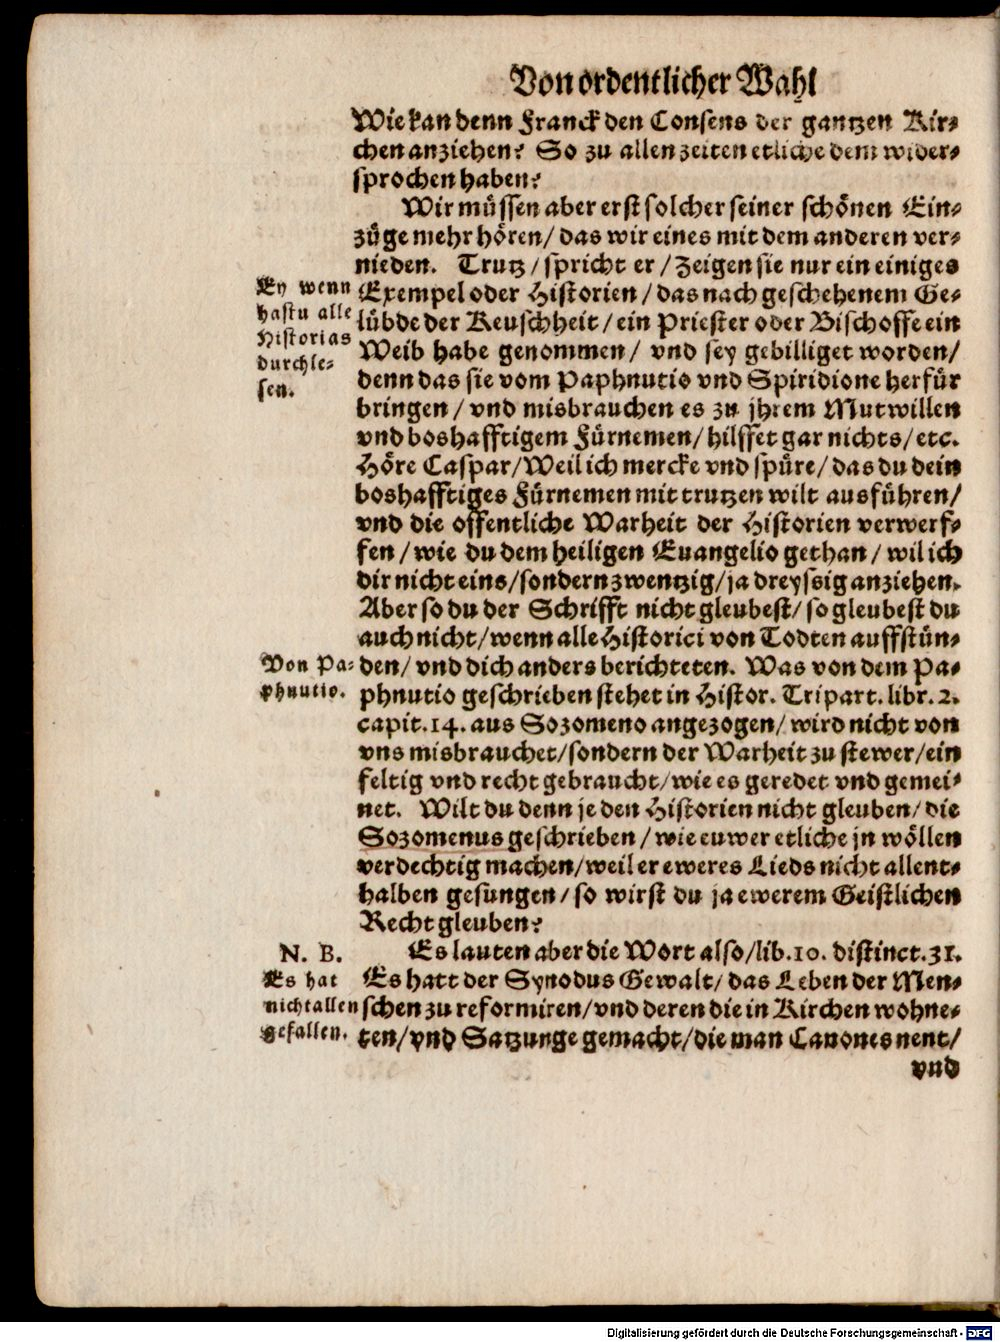 Von ordentlicher Wahl
Wie kan denn Franck den Consens der gantzen Kir-
chen anziehen? So zu allen zeiten etliche dem wider-
sprochen haben?
Wir müssen aber erst solcher seiner schönen Ein-
züge mehr hören/ das wir eines mit dem anderen ver-
nieden. Trutz/ spricht er/ Zeigen sie nur ein einiges
Exempel oder Historien/ das nach geschehenem Ge-
lübde der Keuschheit/ ein Priester oder Bischoffe ein
Weib habe genommen/ vnd sey gebilliget worden/
denn das sie vom Paphnutio vnd Spiridione herfür
bringen/ vnd misbrauchen es zu jhrem Mutwillen
vnd boshafftigem Fürnemen/ hilffet gar nichts/ etc.
Höre Caspar/ Weil ich mercke vnd spüre/ das du dein
boshafftiges Fürnemen mit trutzen wilt ausführen/
vnd die offentliche Warheit der Historien verwerf-
fen/ wie du dem heiligen Euangelio gethan/ wil ich
dir nicht eins/ sondern zwentzig/ ja dreyssig anziehen.
Aber so du der Schrifft nicht gleubest/ so gleubest du
auch nicht/ wenn alle Historici von Todten auffstün-
den/ vnd dich anders berichteten. Was von dem Pa-
phnutio geschrieben stehet in Histor. Tripart. libr. 2.
capit. 14. aus Sozomeno angezogen/ wird nicht von
vns misbrauchet/ sondern der Warheit zu stewer/ ein
feltig vnd recht gebraucht/ wie es geredet vnd gemei-
net. Wilt du denn je den Historien nicht gleuben/ die
Sozomenus geschrieben/ wie euwer etliche jn wöllen
verdechtig machen/ weil er eweres Lieds nicht allent-
halben gesungen/ so wirst du ja ewerem Geistlichen
Recht gleuben?
Es lauten aber die Wort also/ lib. 10. distinct. 31.
Es hatt der Synodus Gewalt/ das Leben der Men-
schen zu reformiren/ vnd deren die in Kirchen wohne-
ten/ vnd Satzunge gemacht/ die man Canones nent/
vnd
Ey wenn
hastu alle
Historias
durchle-
sen.
Von Pa-
phnutio.
N. B.
Es hat
nicht allen
gefallen.
Digitalisierung gefördert durch die Deutsche Forschungsgemeinschaft - DFG